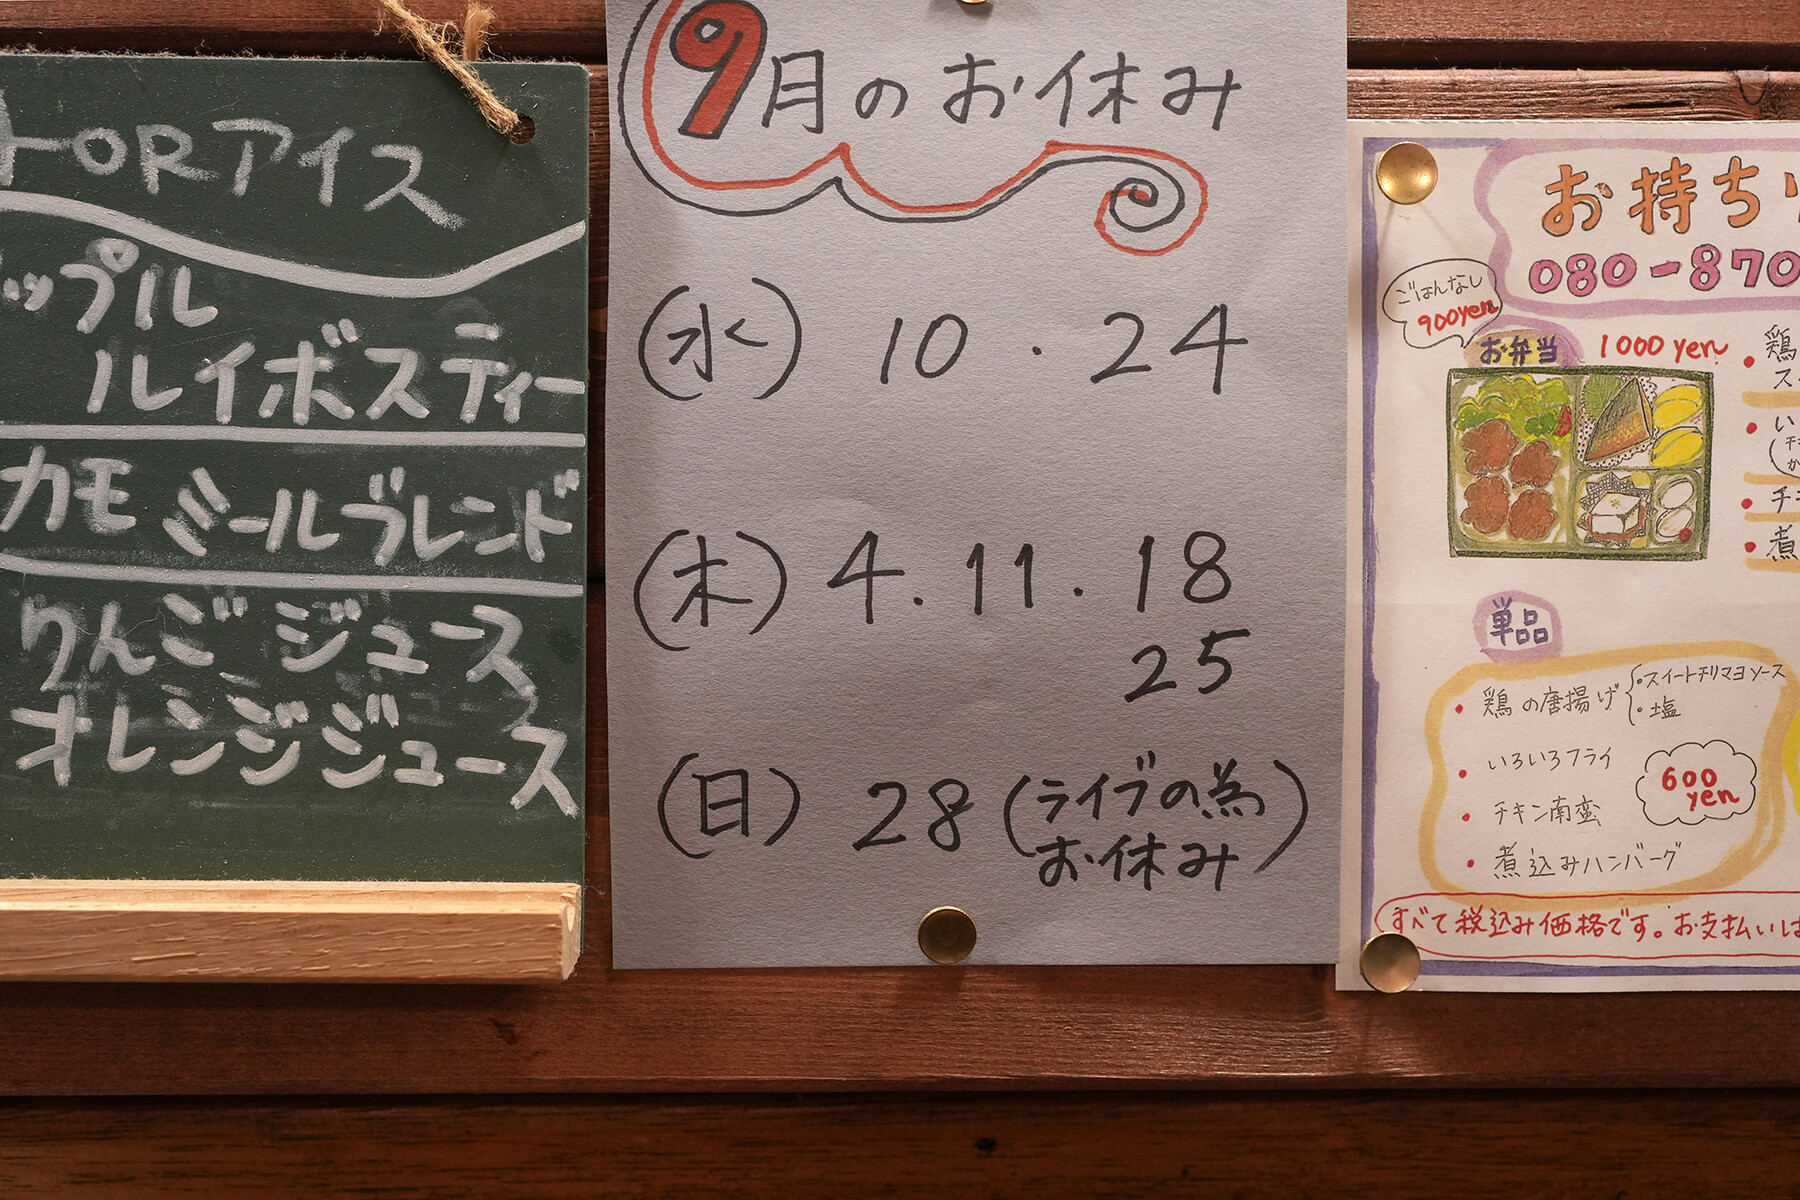 ORアイス
ップル
ルイボスティー
カモミールブレンド
りんごジュース
オレンジジュース
9月のお休み
(水) 10 . 24
(木) 4 . 11 . 18
25
(日) 28 (ライブの為
お休み)
お持ち
080-870
ごはんなし
900yen
お弁当
1000 yen
単品
• 鶏の唐揚げ
•スイートチリマヨソース
• 塩
• いろいろフライ
• チキン南蛮
• 煮込みハンバーグ
600
yen
• 鶏
• い
• チキ
• 煮
すべて税込み価格です。お支払いは